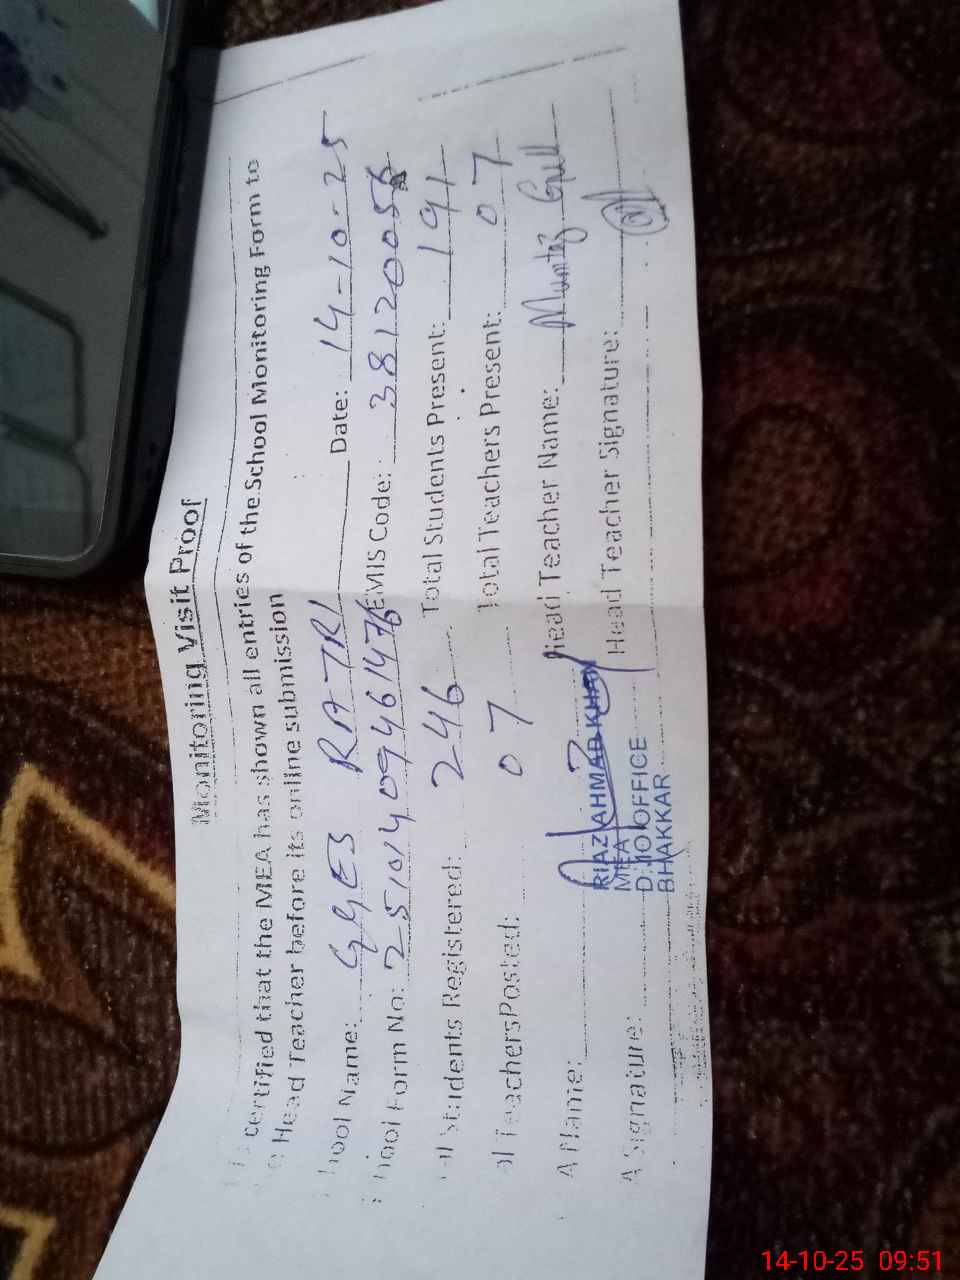 Monitoring Visit Proof
certified that the MEA has shown all entries of the School Monitoring Form to
Head Teacher before its online submission
hool Name: GGES RATRI Date: 14-10-25
hool Form No: EMIS Code:
al Students Registered: 246 Total Students Present: 191
al Teachers Posted: 07 Total Teachers Present: 07
A Name: Head Teacher Name: Mumtaz
RIAZ AHMAD KHAN
MEA
OFFICE
BHAKKAR
A Signature: Head Teacher Signature:
14-10-25 09:51